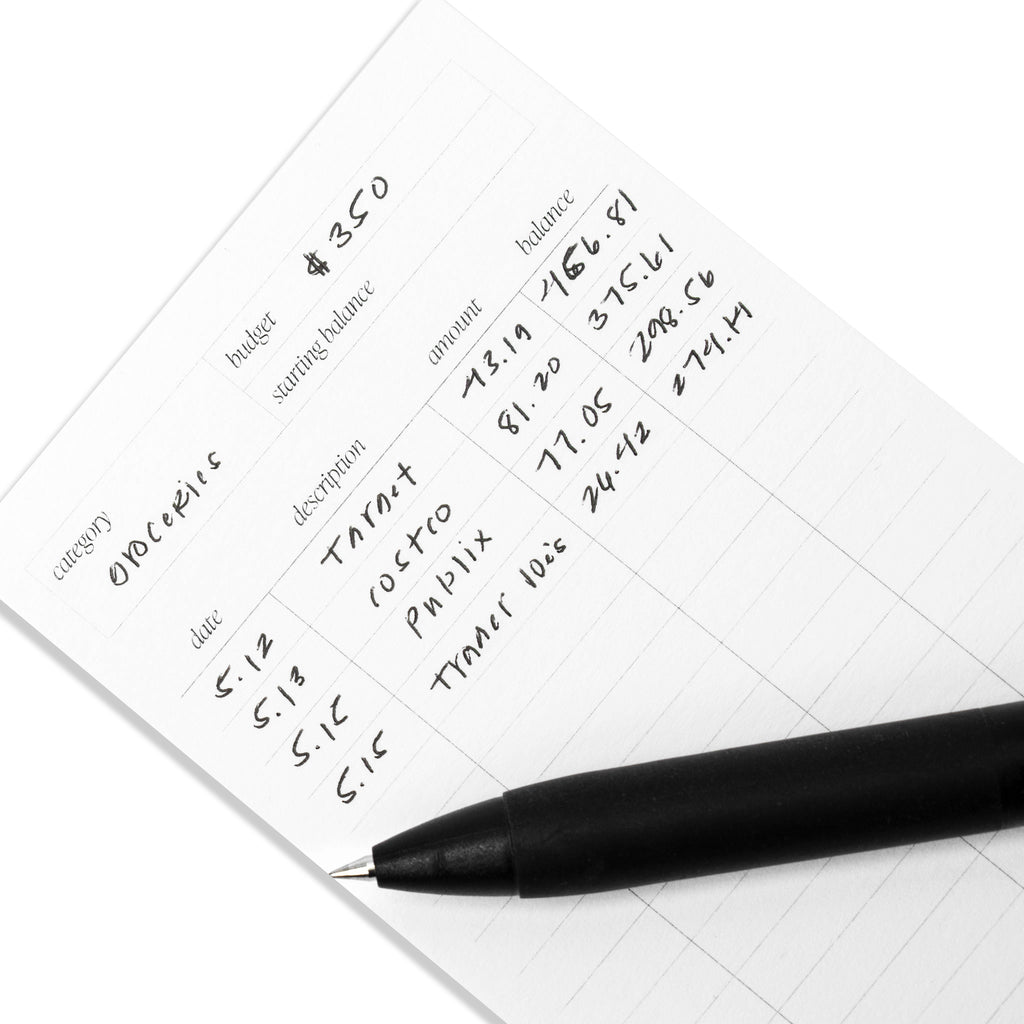 category
groceries
budget
$350
starting balance
date description amount balance
5.12 Target 43.19 456.81
5.13 Costco 81.20 375.61
5.15 Publix 77.05 298.56
5.15 Trader Joe's 24.42 274.14